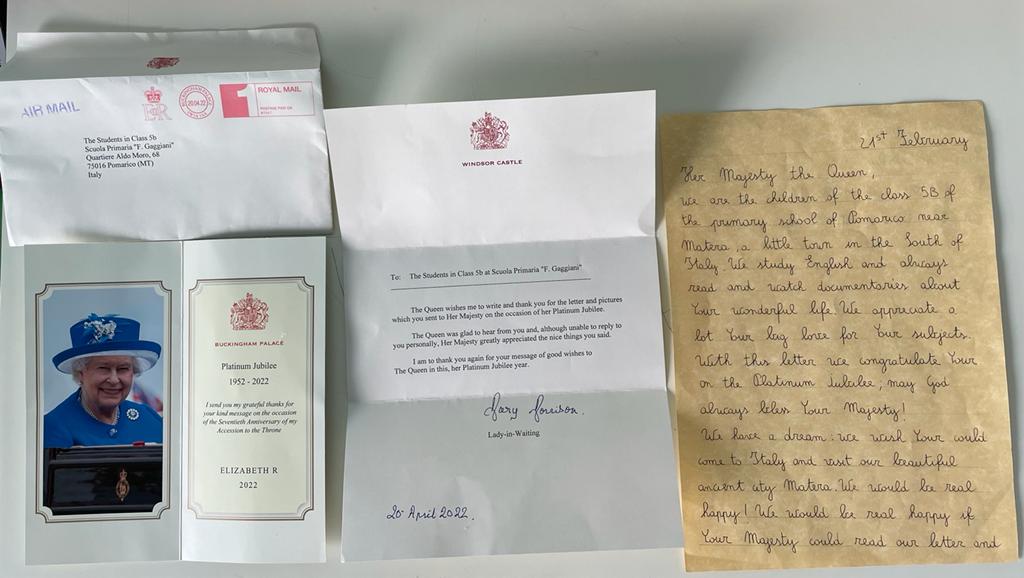 AIR MAIL
E II R
BUCKINGHAM PALACE
20.04.22
1
ROYAL MAIL
POSTAGE PAID GB
The Students in Class 5b
Scuola Primaria "F. Gaggiani"
Quartiere Aldo Moro, 68
75016 Pomarico (MT)
Italy
BUCKINGHAM PALACE
Platinum Jubilee
1952 - 2022
I send you my grateful thanks for
your kind message on the occasion
of the Seventieth Anniversary of my
Accession to the Throne
ELIZABETH R
2022
WINDSOR CASTLE
To: The Students in Class 5b at Scuola Primaria "F. Gaggiani"
The Queen wishes me to write and thank you for the letter and pictures
which you sent to Her Majesty on the occasion of her Platinum Jubilee.
The Queen was glad to hear from you and, although unable to reply to
you personally, Her Majesty greatly appreciated the nice things you said.
I am to thank you again for your message of good wishes to
The Queen in this, her Platinum Jubilee year.
Mary Morrison.
Lady-in-Waiting
20 April 2022.
21st February
Her Majesty the Queen,
we are the children of the class 5B of
the primary school of Pomarico near
Matera, a little town in the South of
Italy. We study English and always
read and watch documentaries about
Your wonderful life. We appreciate a
lot Your big love for Your subjects.
With this letter we congratulate Your
on the Platinum Jubilee; may God
always bless Your Majesty!
We have a dream: we wish Your could
come to Italy and visit our beautiful
ancient city Matera. We would be real
happy! We would be real happy if
Your Majesty could read our letter and